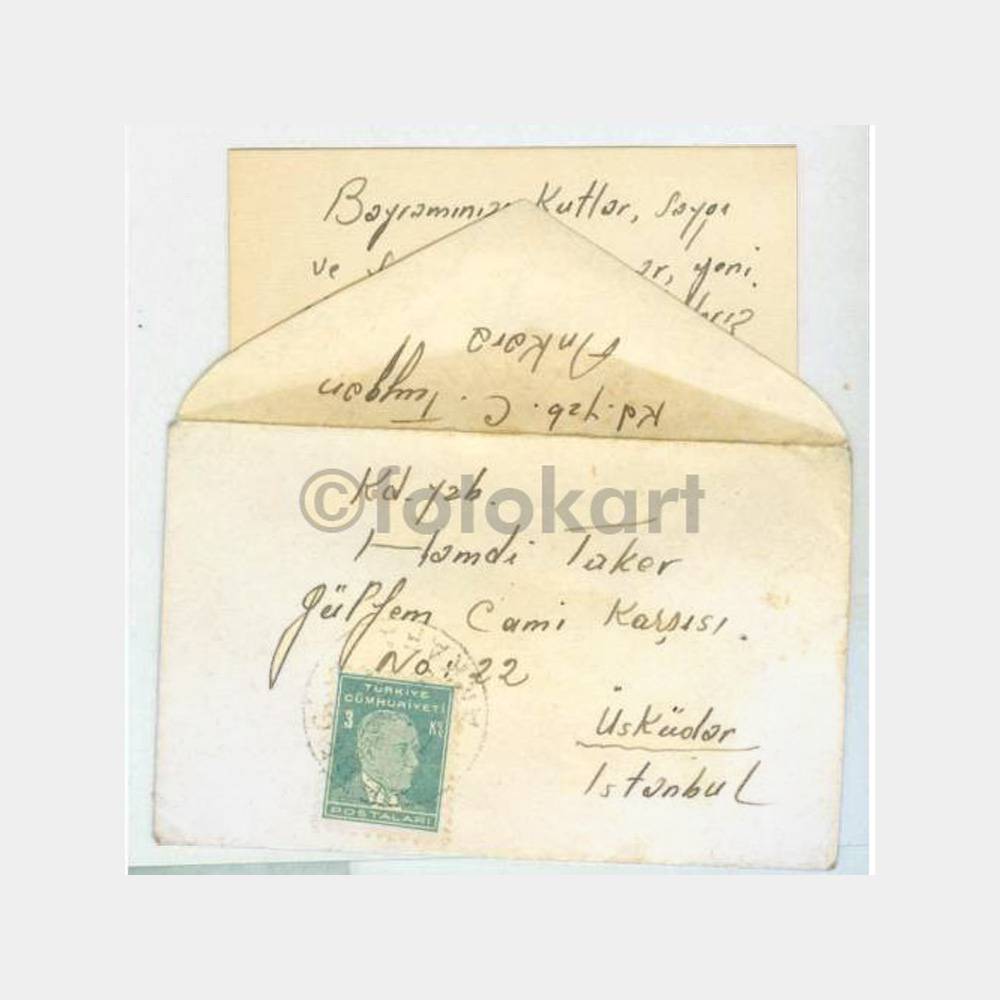 Bayramınızı Kutlar, Saygı
ve
yeni
Ankara
Kd. yzb. C. Tuygan
©fotokart
Kd. yzb.
Hamdi Taker
Gülfem Cami Karşısı.
No: 22
Üsküdar
Istanbul
TÜRKİYE
CÜMHURİYETİ
3 Kş
POSTALARI